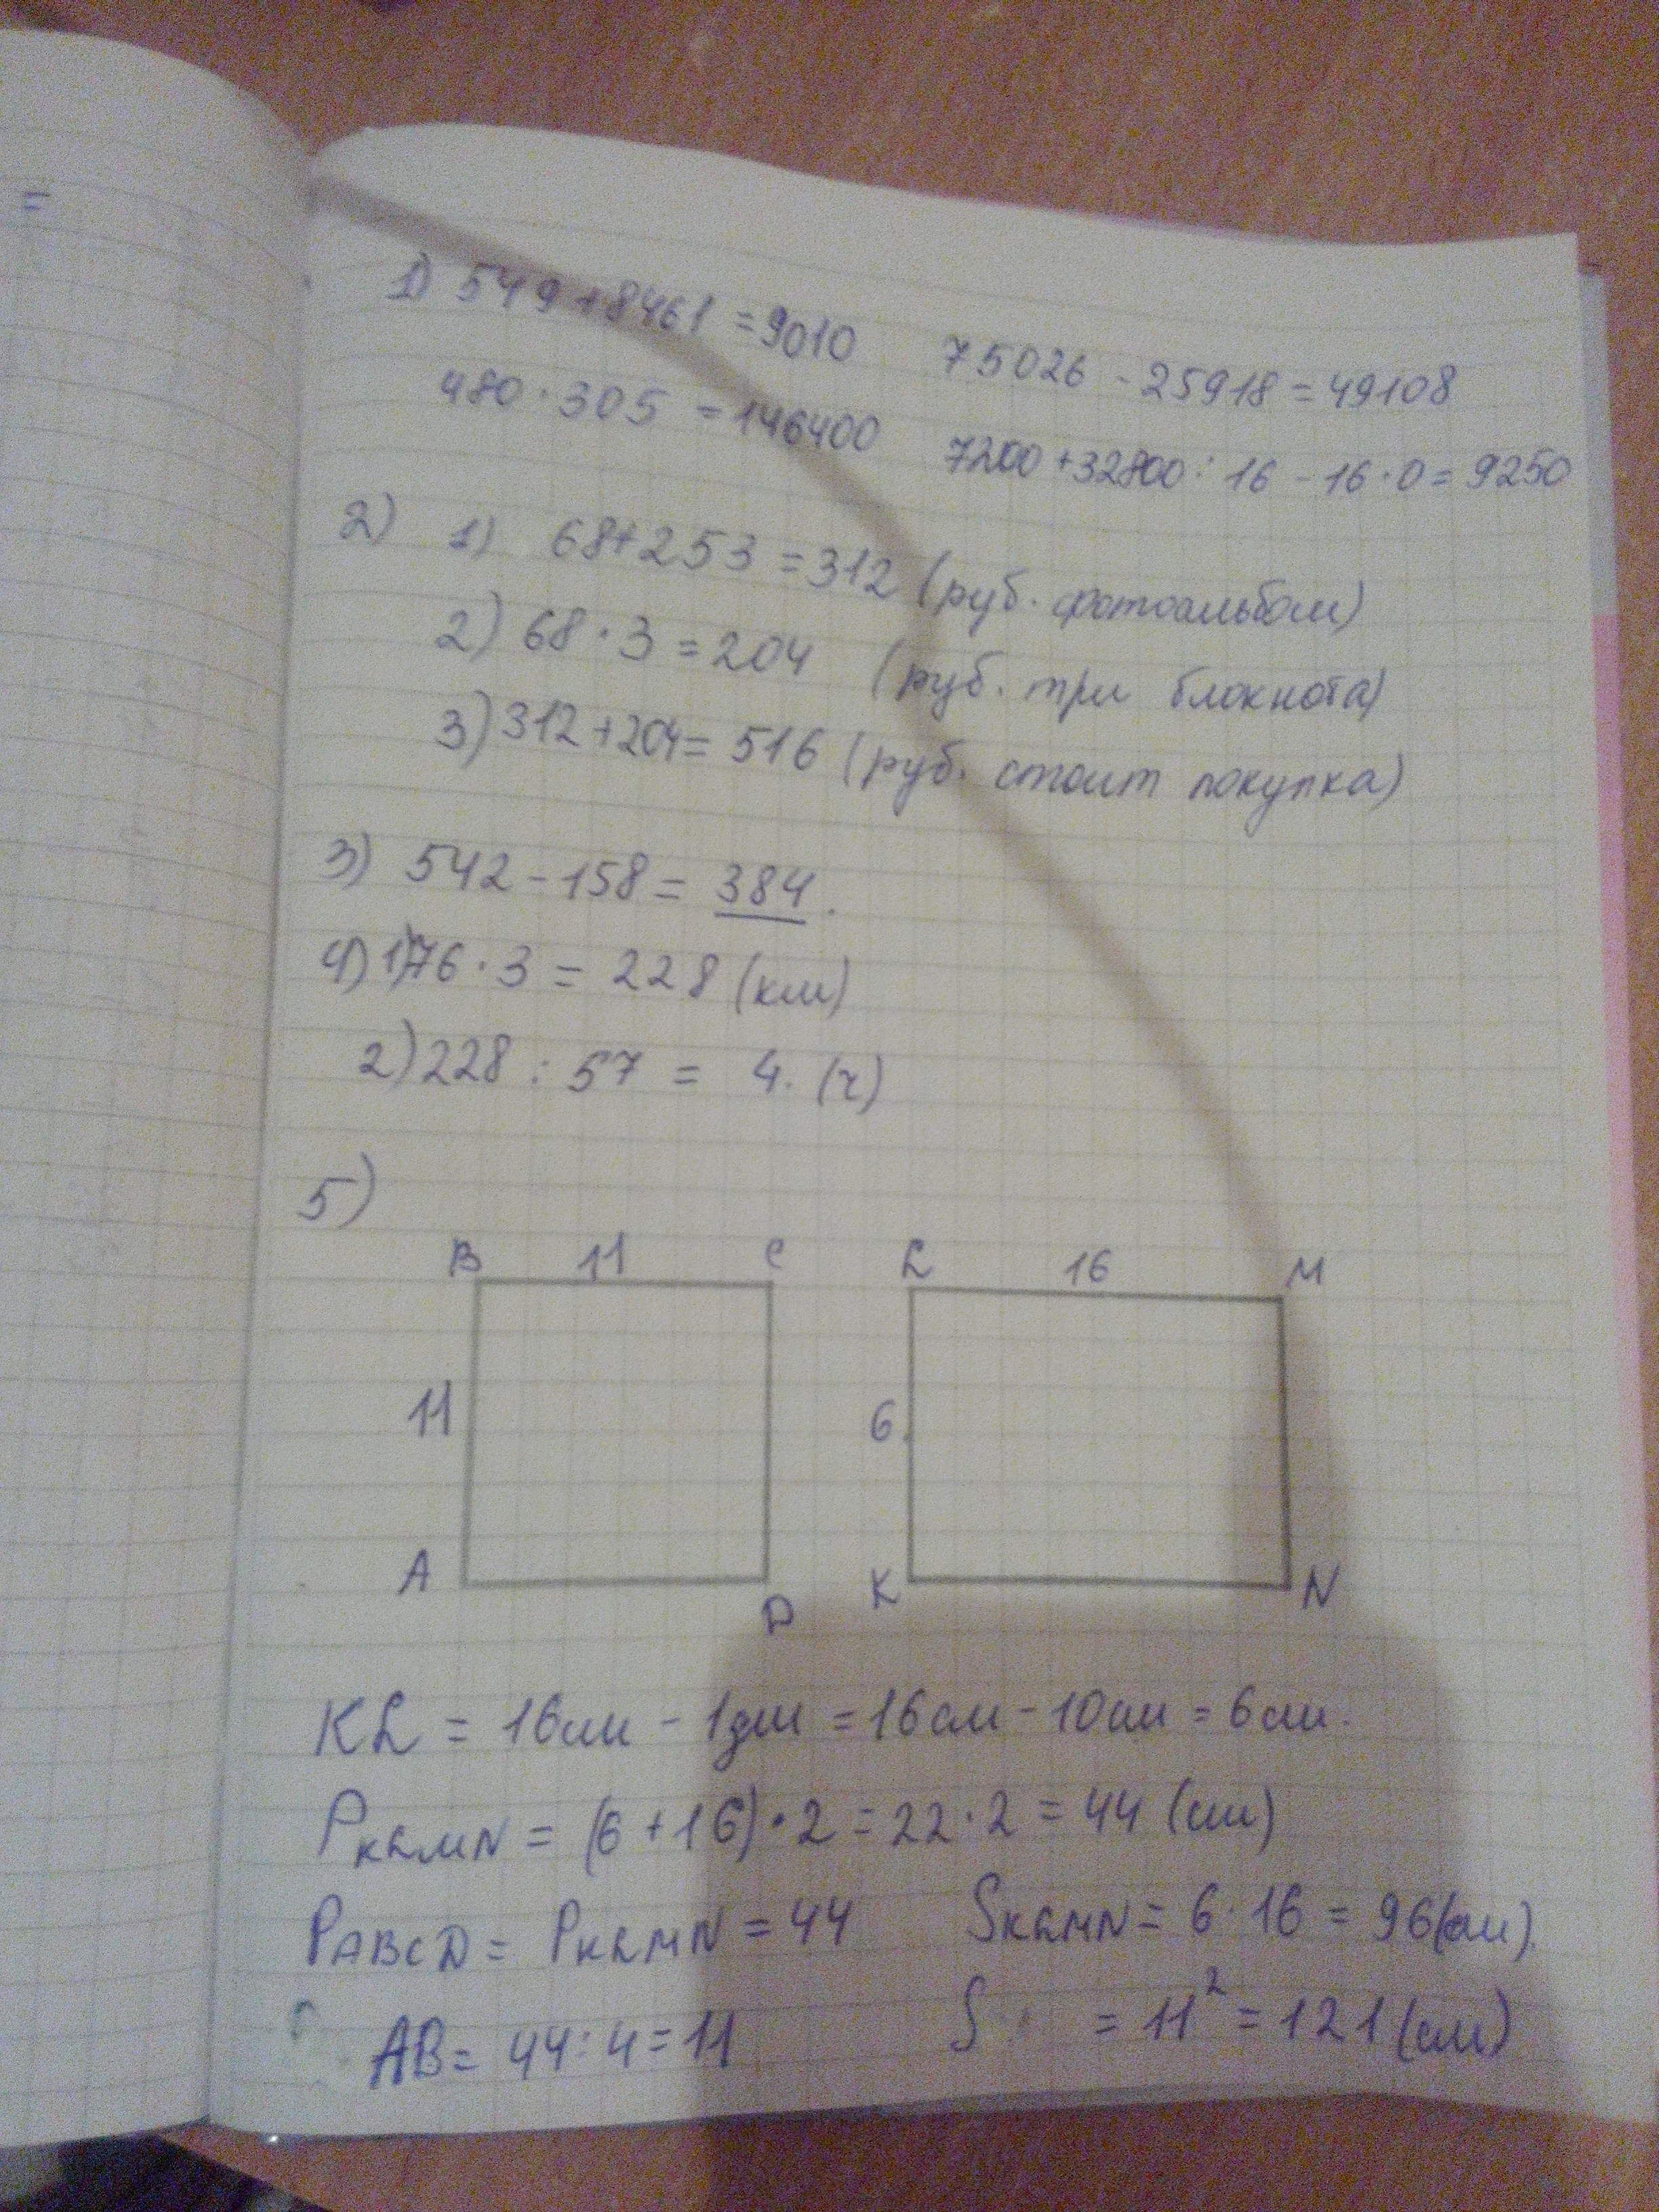 =
1) 549+8461=9010 75026-25918=49108
480·305=146400 7200+32800:16-16·0=9250
2) 1) 68+253=312 (руб. фотоальбом)
2) 68·3=204 (руб. три блокнота)
3) 312+204=516 (руб. стоит покупка)
3) 542-158=384.
4) 1) 76·3=228 (км)
2) 228:57=4. (ч)
5)
B 11 C L 16 M
11 6
A D K N
KL = 16см - 1дм = 16см - 10см = 6см.
PKLMN = (6+16)·2=22·2=44 (см)
PABCD = PKLMN = 44 SKLMN = 6·16 = 96(см).
AB = 44:4=11 S = 11² = 121 (см)